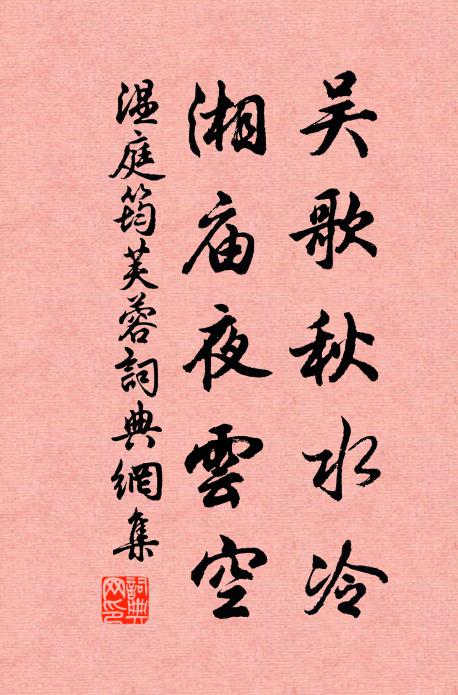 吴歌秋水冷
湘庙夜雲空
温庭筠芙蓉詞典網集
詞典網印